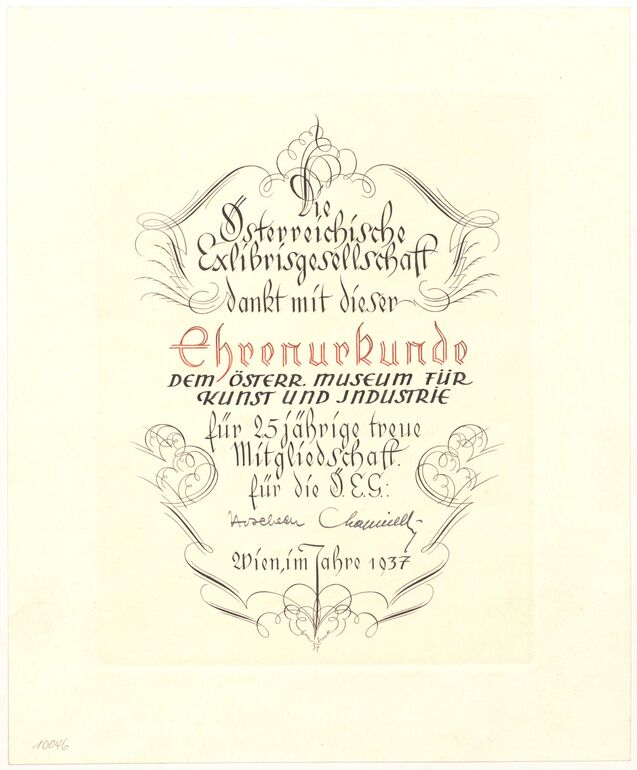 Die
Österreichische
Exlibrisgesellschaft
dankt mit dieser
Ehrenurkunde
DEM ÖSTERR. MUSEUM FÜR
KUNST UND JNDUSTRIE
für 25 jährige treue
Mitgliedschaft.
für die Ö.E.G.:
Wien, im Jahre 1937
10046